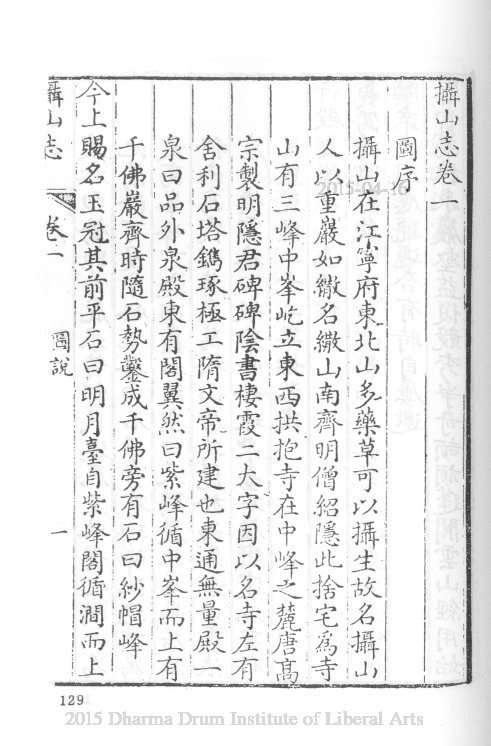 攝山志卷一
圖序
攝山在江寧府東北山多藥草可以攝生故名攝山
人以重巖如繖名繖山南齊明僧紹隱此捨宅為寺
山有三峰中峯屹立東西拱抱寺在中峰之麓唐高
宗製明隱君碑碑陰書棲霞二大字因以名寺左有
舍利石塔鐫琢極工隋文帝所建也東通無量殿一
泉曰品外泉殿東有閣翼然曰紫峰循中峯而上有
千佛巖齊時隨石勢鑿成千佛旁有石曰紗帽峰
今上賜名玉冠其前平石曰明月臺自紫峰閣循澗而上
攝山志 卷一 圖說 一
129
2015-04-16
2015 Dharma Drum Institute of Liberal Arts